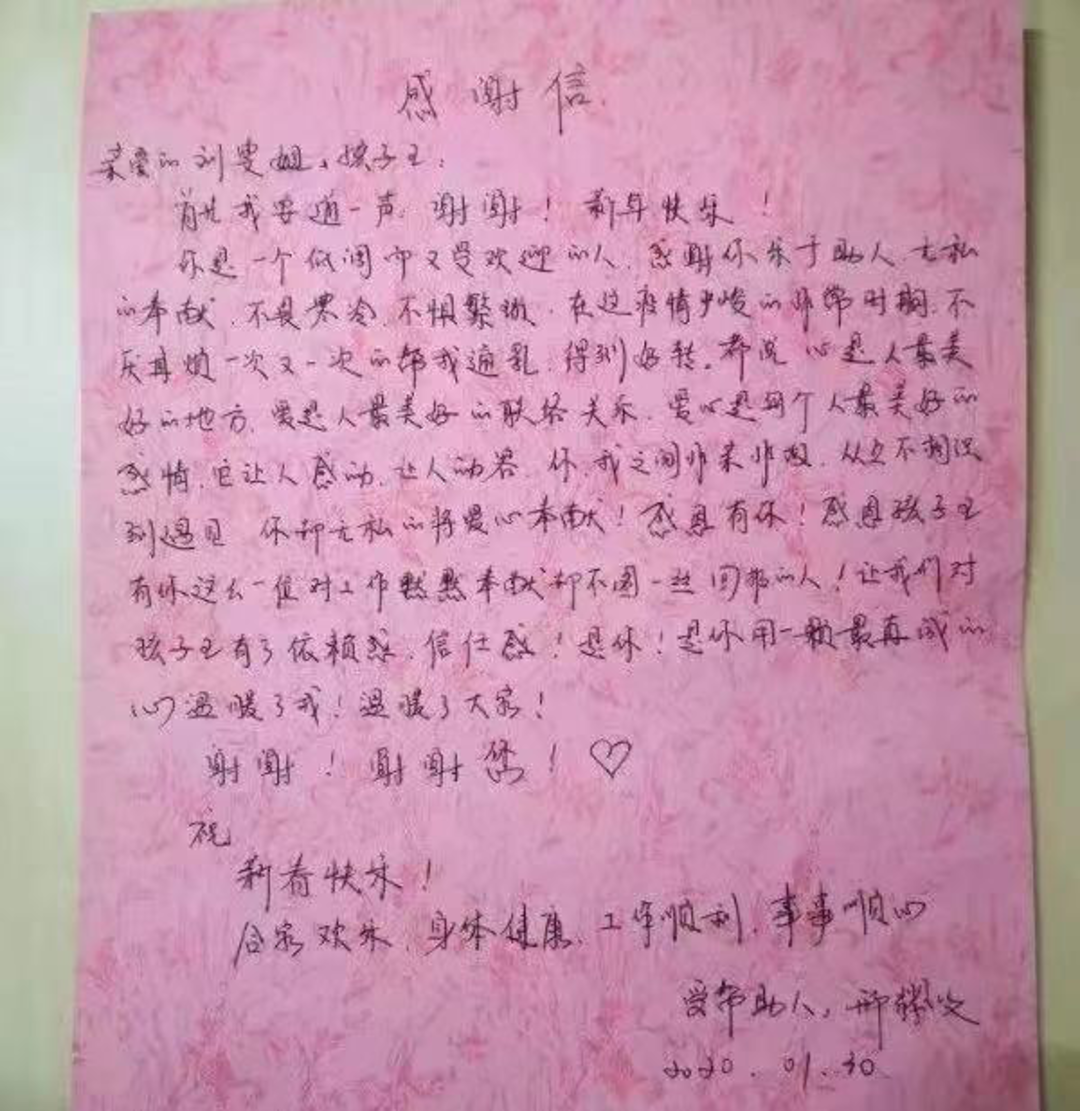 感谢信
亲爱的刘雯姐、孩子王：
首先我要道一声 谢谢！新年快乐！
你是一个低调而又受欢迎的人，感谢你乐于助人，无私
的奉献，不畏寒冷，不惧繁琐，在这疫情严峻的非常时期，不
厌其烦一次又一次的帮我通乳，得到好转。都说心是人最美
好的地方，爱是人最美好的联络关系，爱心是每个人最美好的
感情，它让人感动，让人动容，你、我之间非亲非故，从互不相识
到遇见 你却无私的将爱心奉献！感恩有你！感恩孩子王
有你这么一位对工作默默奉献却不图一丝回报的人！让我们对
孩子王有了依赖感，信任感！是你！是你用一颗最真诚的
心温暖了我！温暖了大家！
谢谢！谢谢您！♡
祝
新春快乐！
合家欢乐，身体健康，工作顺利，事事顺心
受帮助人：邢
2020.01.30